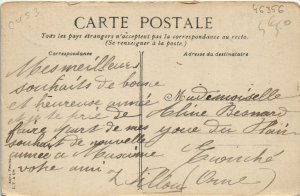 46356
CARTE POSTALE
Tous les pays étrangers n'acceptent pas la correspondance au recto.
(Se renseigner à la poste.)
Correspondance
Adresse du destinataire
Mes meilleurs
souhaits de bonne
et heureuse année
je te prie de
faire part de mes
souhait de nouvelle
année a
votre ami
Mademoiselle
Aline Besnard
(Orne)